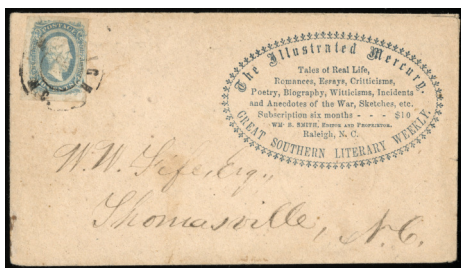 The Illustrated Mercury.
Tales of Real Life,
Romances, Essays, Critticisms,
Poetry, Biography, Witticisms, Incidents
and Anecdotes of the War, Sketches, etc.
Subscription six months - - - $10
WM. S. SMITH, EDITOR AND PROPRIETOR.
Raleigh, N. C.
GREAT SOUTHERN LITERARY WEEKLY.
W. W. Fife, Esq.,
Thomasville, N.C.